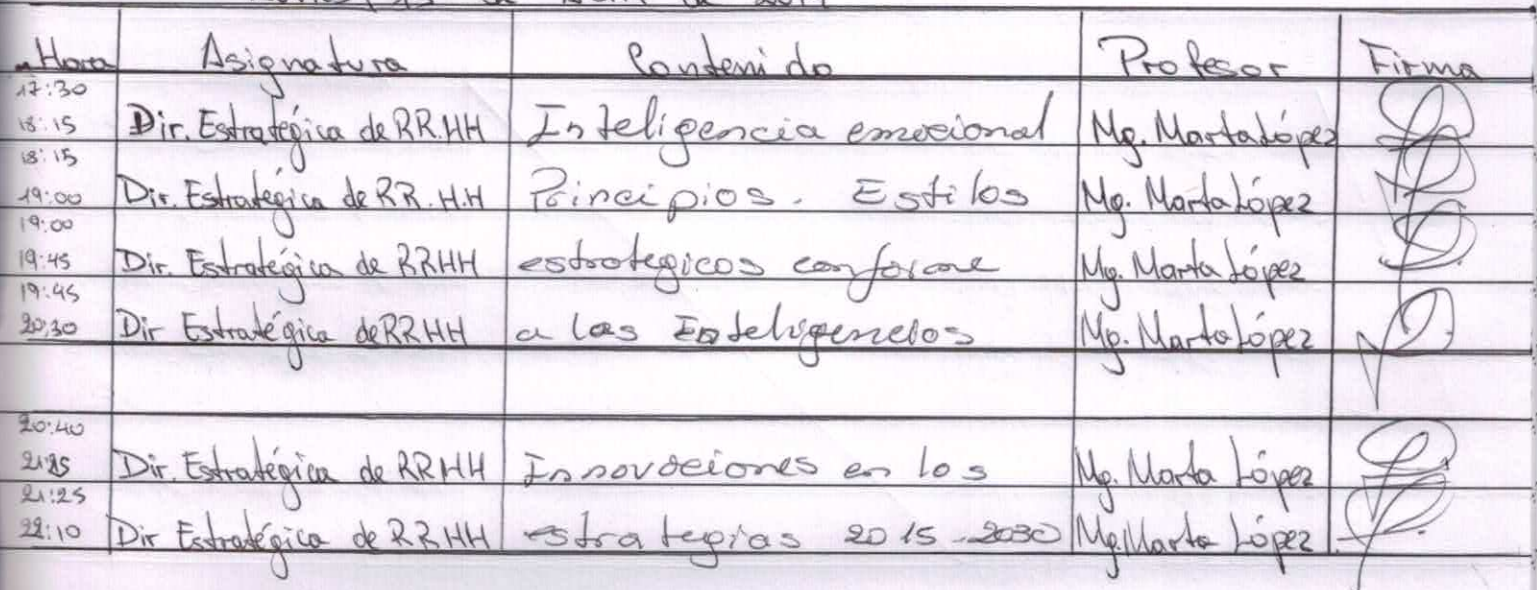 Hora Asignatura Contenido Profesor Firma
17:30
18:15 Dir. Estratégica de RR.HH Inteligencia emocional Mg. Marta López
18:15
19:00 Dir. Estratégica de RR.H.H Principios. Estilos Mg. Marta López
19:00
19:45 Dir. Estratégica de RRHH estrategicos conforme Mg. Marta López
19:45
20:30 Dir Estratégica de RRHH a las Inteligencias Mg. Marta López
20:40
21:25 Dir. Estratégica de RRHH Innovaciones en los Mg. Marta López
21:25
22:10 Dir Estratégica de RRHH estrategias 2015-2030 Mg. Marta López